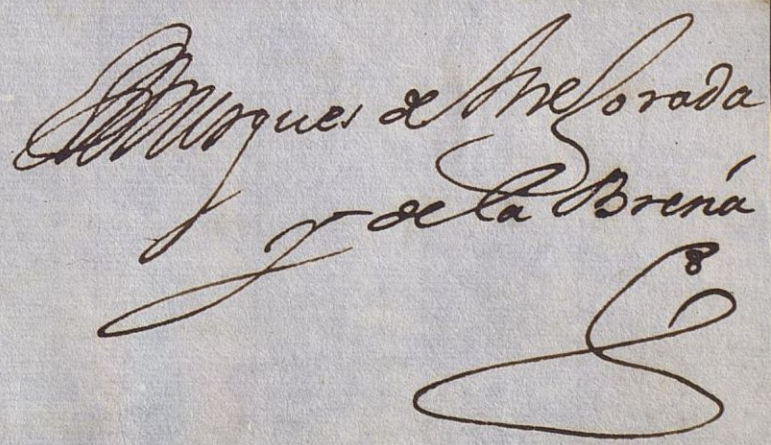 El Marques de Mejorada
y de la Breña